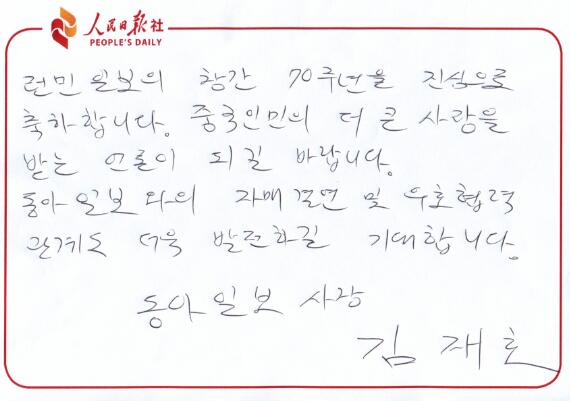 人民日报社
PEOPLE'S DAILY
런민 일보의 창간 70주년을 진심으로
축하합니다. 중국인민의 더 큰 사랑을
받는 언론이 되길 바랍니다.
동아일보와의 자매결연 및 우호협력
관계도 더욱 발전하길 기대합니다.
동아일보 사장
김재호